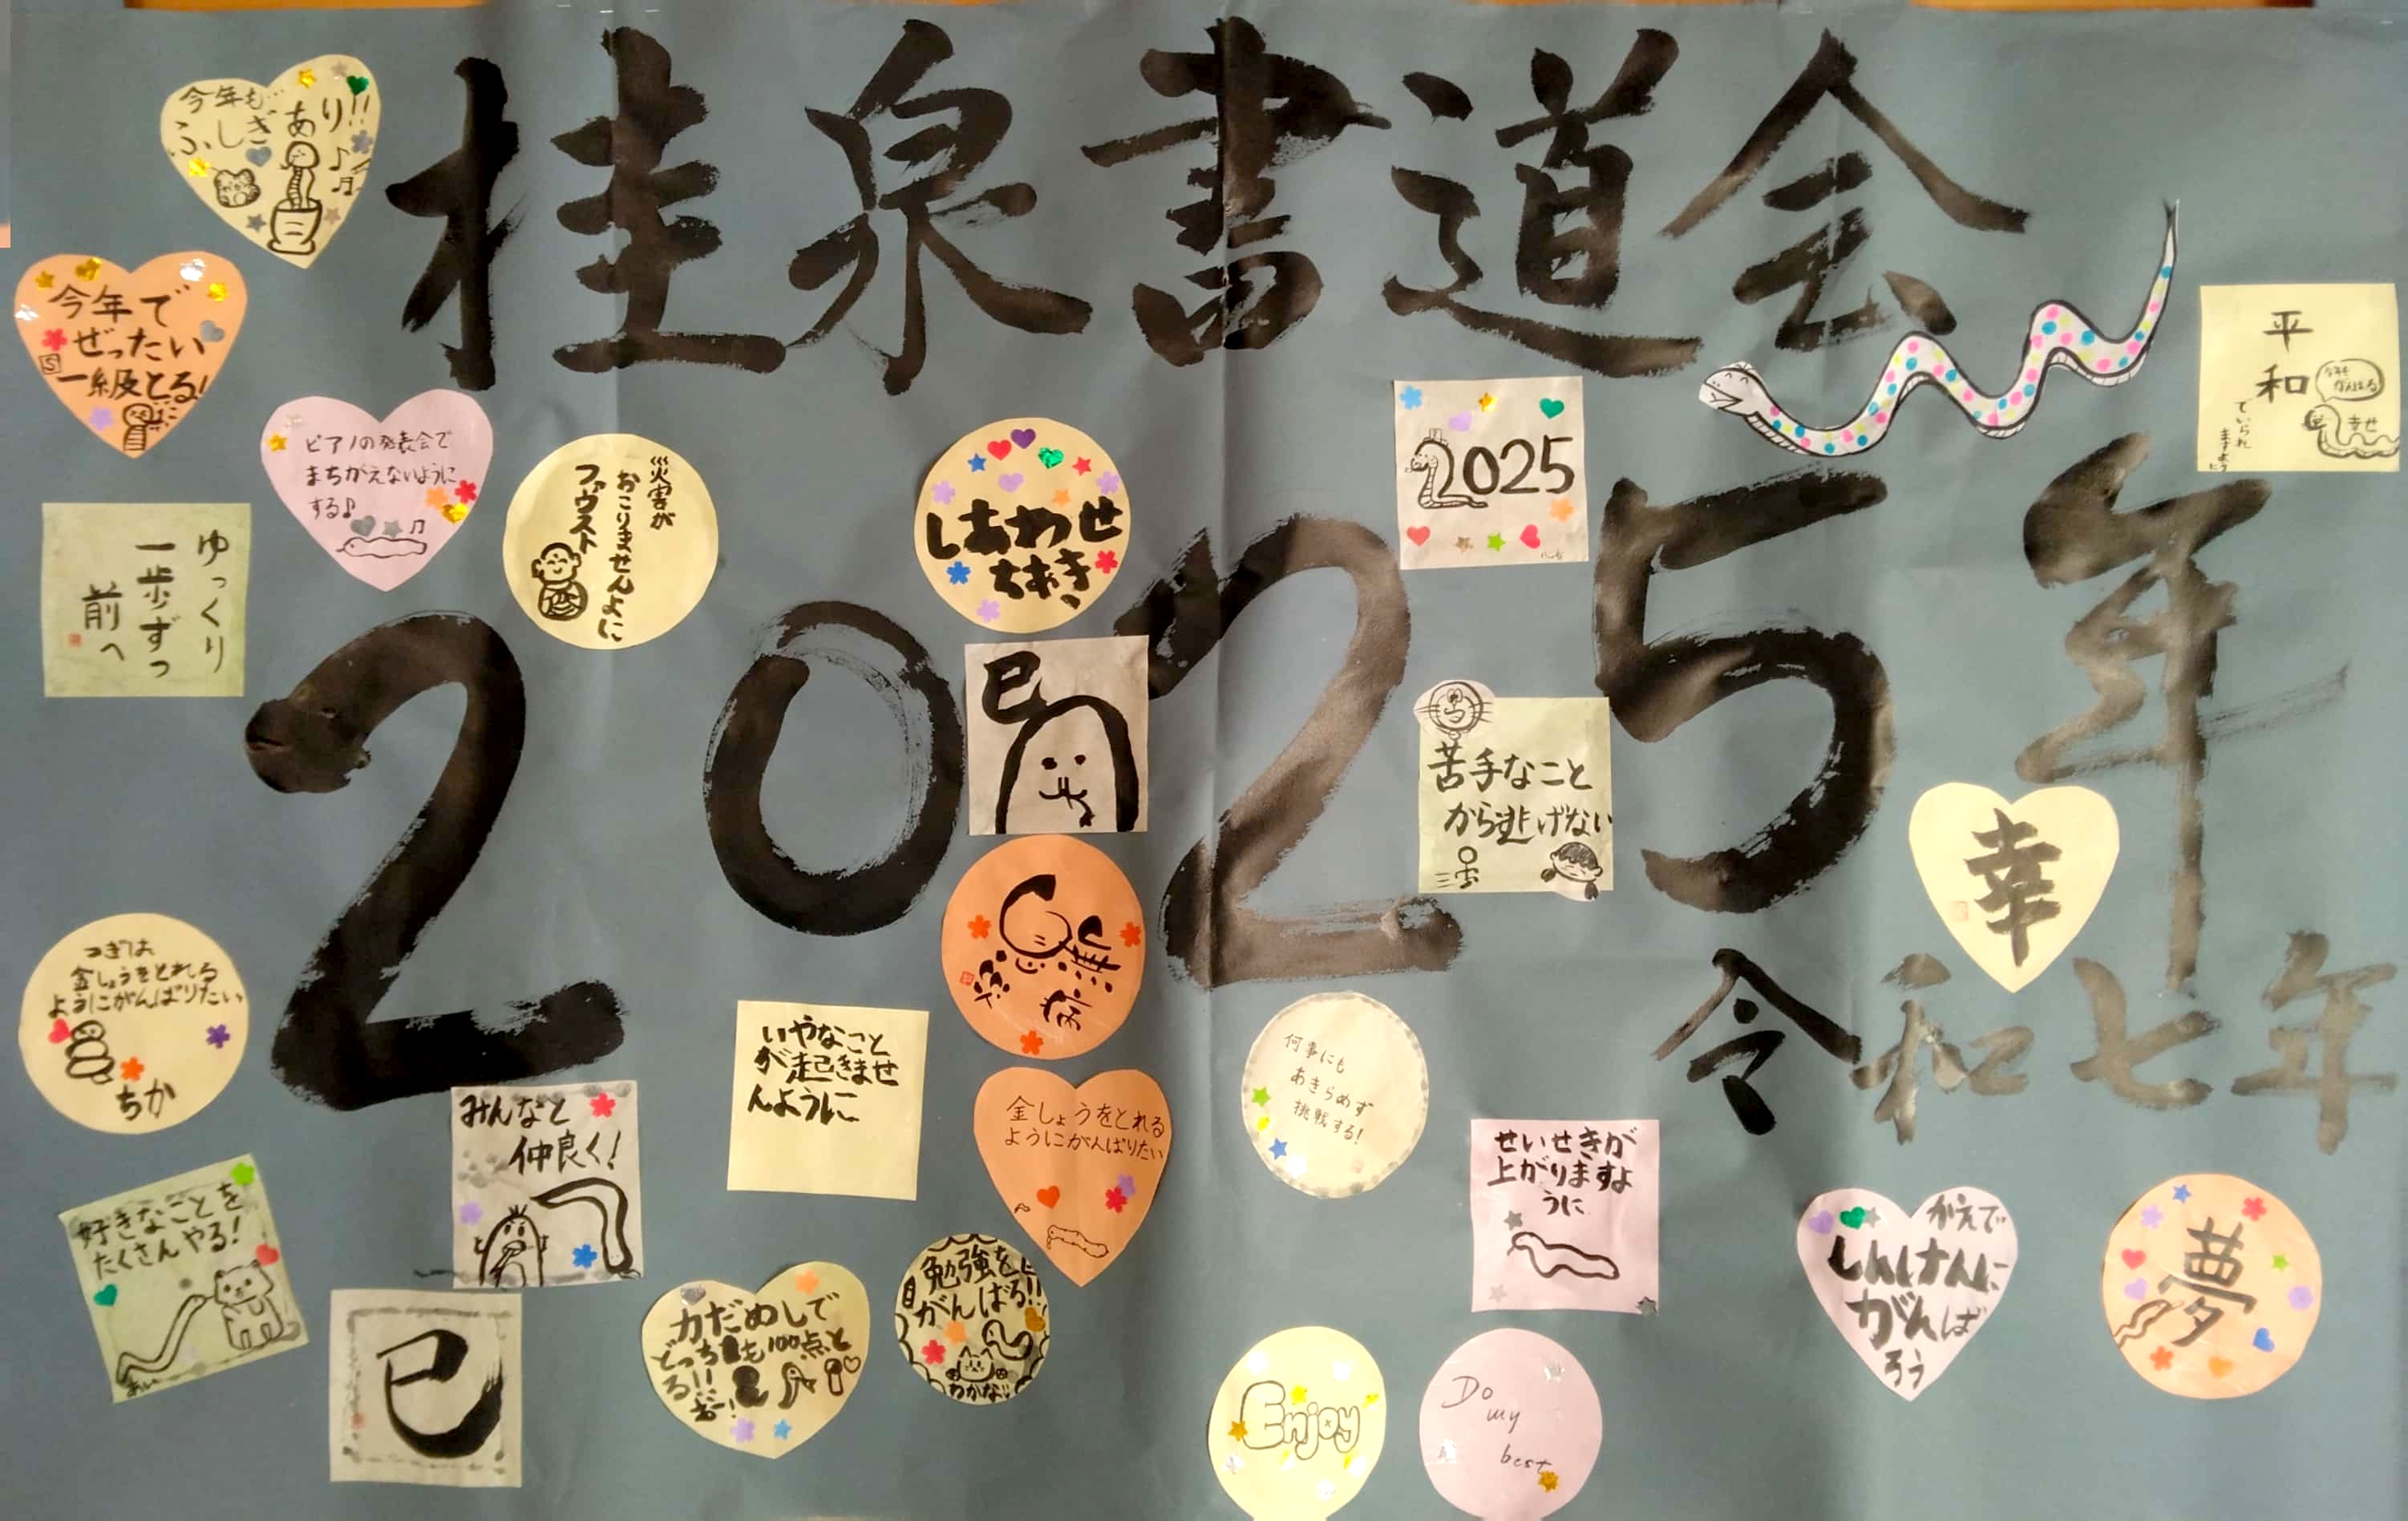 桂泉書道会
2025年
令和七年
今年も…
ふしぎあり!!
今年で
ぜったい
一級とる!
ピアノの発表会で
まちがえないように
する♪
災害が
おこりませんよに
ファウスト
しあわせ
2025
平和
ていられ
ますように
今年も
がんばる
幸せ
ゆっくり
一歩ずつ
前へ
巳
苦手なこと
から逃げない
幸
無病
つぎは
金しょうをとれる
ようにがんばりたい
ちか
いやなこと
が起きませ
んように
金しょうをとれる
ようにがんばりたい
何事にも
あきらめず
挑戦する!
みんなと
仲良く!
せいせきが
上がりますよ
うに
好きなことを
たくさんやる!
あい
巳
力だめしで
どっちも100点と
る!!
おー!
勉強を
がんばる!!
わかな
かえで
しんけんに
がんば
ろう
夢
Enjoy
Do
my
best